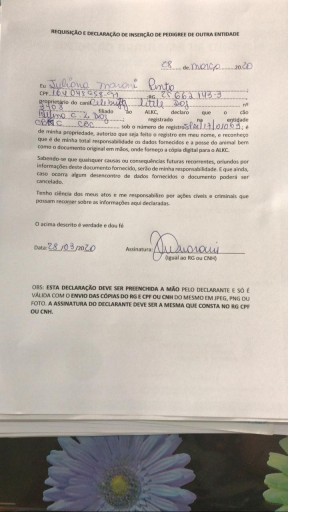 REQUISIÇÃO E DECLARAÇÃO DE INSERÇÃO DE PEDIGREE DE OUTRA ENTIDADE
28 de março 2020
Eu Juliana Pinto
CPF RG
proprietário do canil Little Dog
filiado ao ALKC, declaro que o cão
registrado na entidade
CBC sob o número de registro , é
de minha propriedade, autorizo que seja feito o registro em meu nome, e reconheço
que é de minha total responsabilidade os dados fornecidos e a posse do animal bem
como o documento original em mãos, onde forneço a cópia digital para o ALKC.
Sabendo-se que quaisquer causas ou consequências futuras recorrentes, oriundos por
informações deste documento fornecido, serão de minha responsabilidade. E que ainda,
caso ocorra algum desencontro de dados fornecidos o documento poderá ser
cancelado.
Tenho ciência dos meus atos e me responsabilizo por ações civeis e criminais que
possam recorrer sobre as informações aqui declaradas.
O acima descrito é verdade e dou fé
Data: 28/03/2020 Assinatura:
(Igual ao RG ou CNH)
OBS: ESTA DECLARAÇÃO DEVE SER PREENCHIDA A MÃO PELO DECLARANTE E SÓ É
VÁLIDA COM O ENVIO DAS CÓPIAS DO RG E CPF OU CNH DO MESMO EM JPEG, PNG OU
FOTO. A ASSINATURA DO DECLARANTE DEVE SER A MESMA QUE CONSTA NO RG CPF
OU CNH.